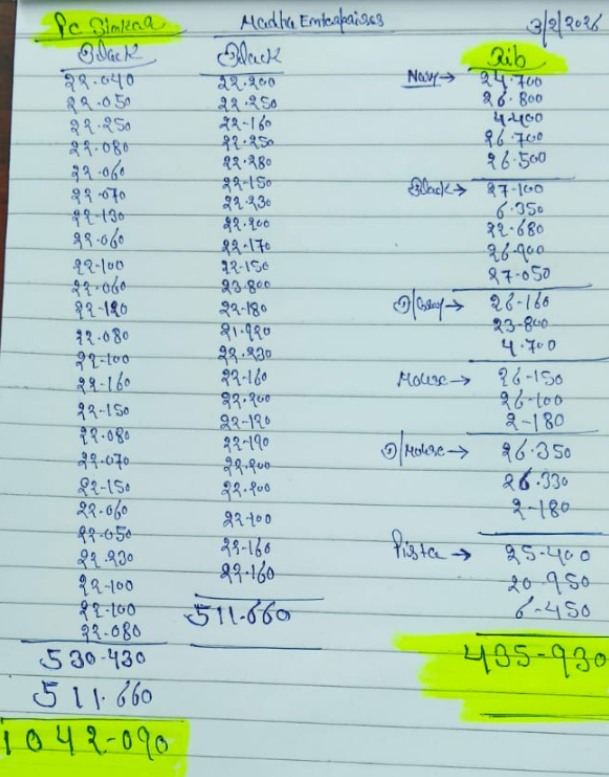 Pc Simkar
Madha Enterprises
3/2/2026
Black
22.040
22.050
22.250
22.080
22.060
22.070
22-130
22.060
22-100
22.060
22-120
22.080
22-100
22-160
22-150
22.080
22.070
22-150
22.060
22.050
22.230
22-100
22-100
22.080
530-430
511.660
1042-090
Black
22.200
22.250
22-160
22.250
22.280
22-150
22.230
22.200
22.170
22-150
23.800
22-180
21.920
22.230
22-160
22.200
22-120
22-190
22.200
22.200
22-100
22-160
22-160
511.660
Rib
Navy → 24.700
26.800
4.400
26.700
26.500
Black → 27-100
6.350
22.680
26.900
27.050
D/Gray → 26-160
23-800
4.700
Mouse → 26-150
26-100
2-180
D/Mouse → 26.350
26.330
2-180
Pista → 25-400
20-950
6-450
435-930